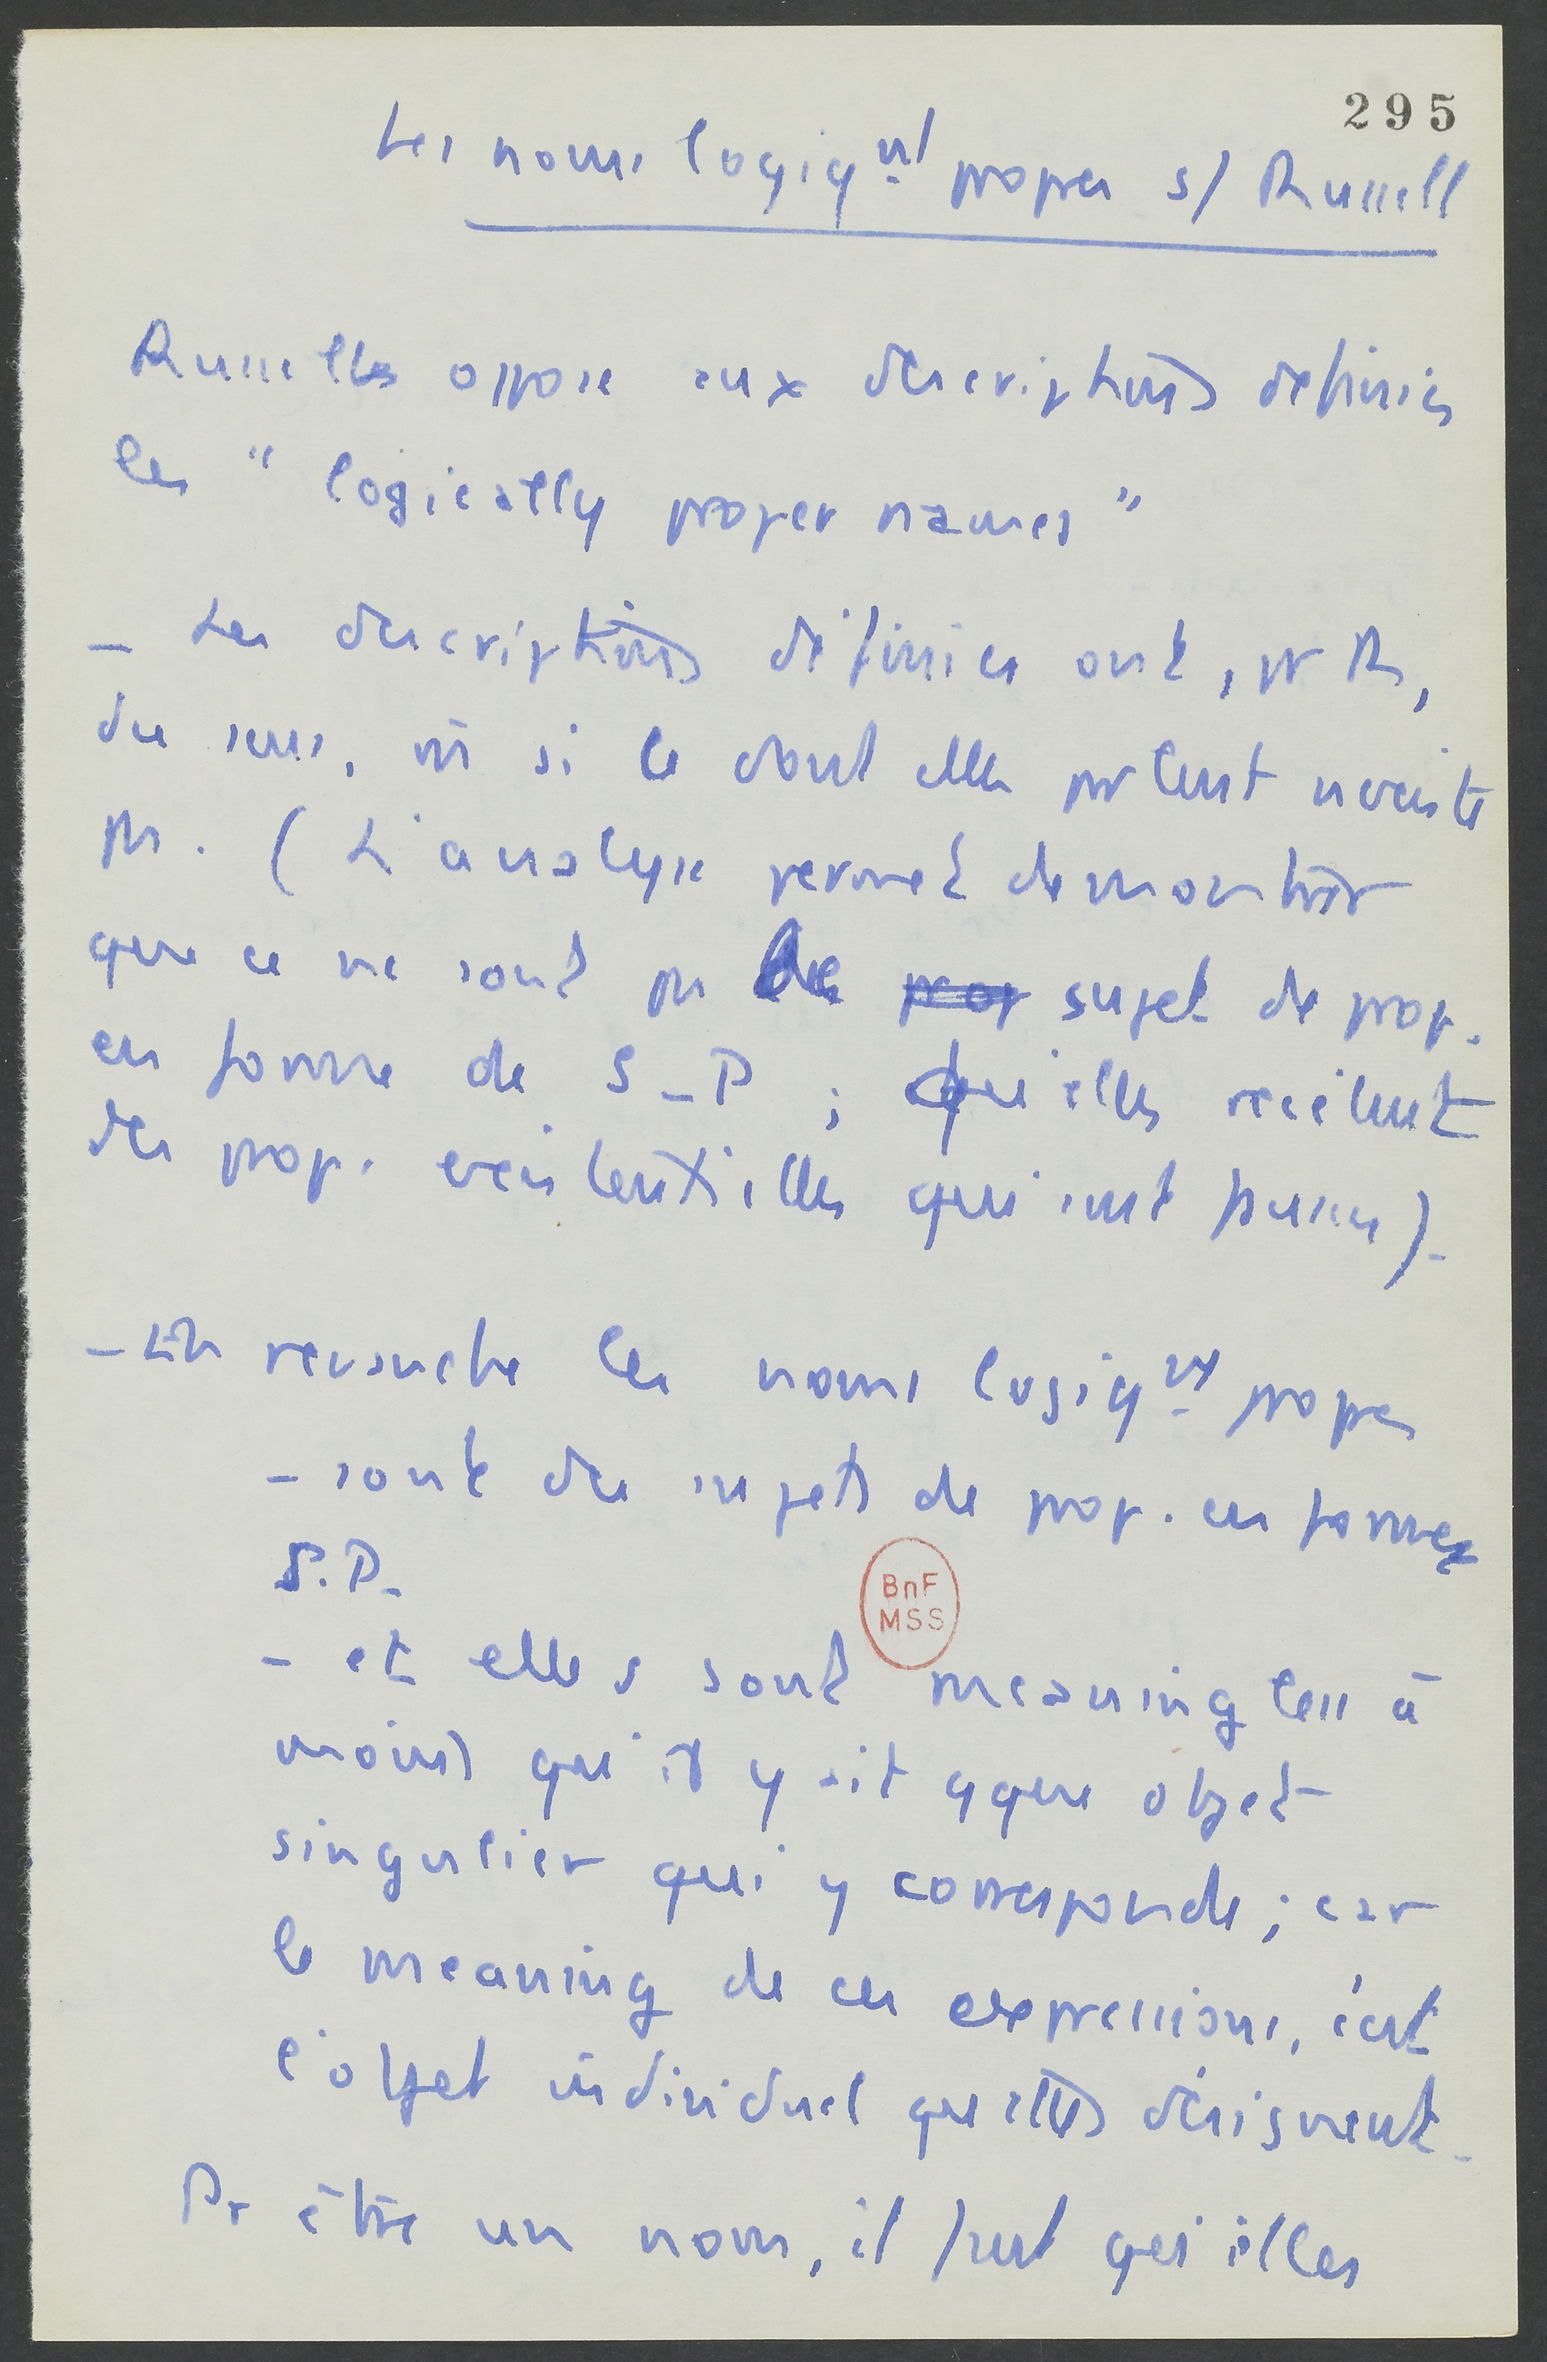 295
Les noms logiqnt propres s/ Russell
Russell oppose aux descriptions définies
les " logically proper names "
- Les descriptions définies ont, pr R,
du sens, m si ce dont elles parlent n'existe
pas. ( L'analyse permet de montrer
que ce ne sont pas des prop sujet de prop.
en forme de S_P ; qu'elles recèlent
des prop. existentielles qui sont fausses).
- En revanche les noms logiqnt propres
- sont des sujets de prop. en forme
S.P.
- et elles sont meaningless à
BnF
MSS
moins qu'il y ait qque objet
singulier qui y corresponde ; car
le meaning de ces expressions, c'est
l'objet individuel qu'elles désignent.
Pr être un nom, il faut qu'elles